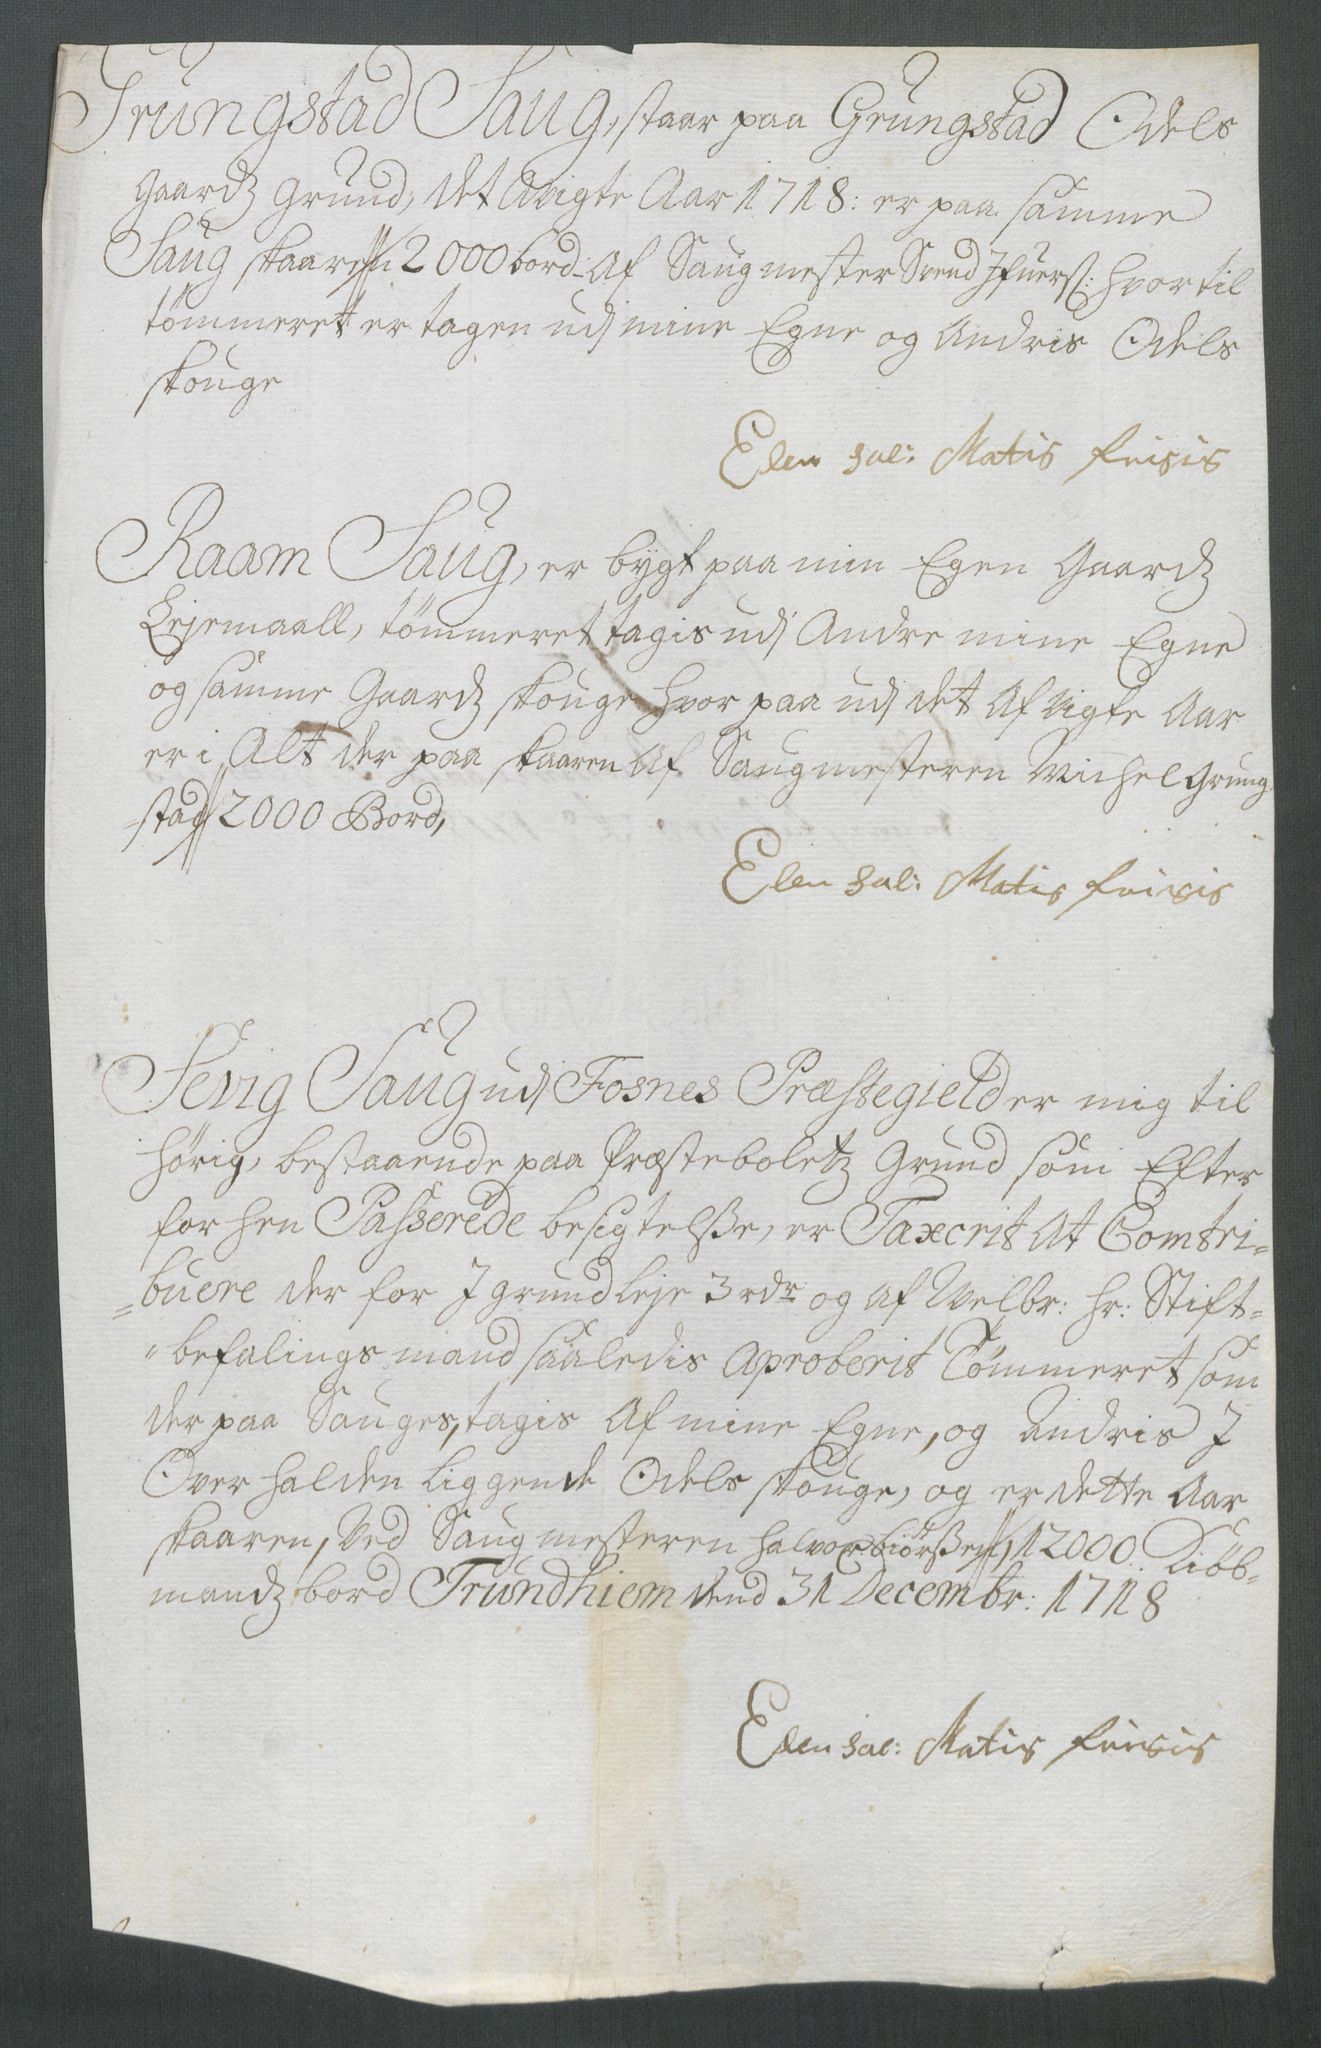 Grungstad Saug, staar paa Grungstad Odels
Gaardz Grund, det Avigte Aar 1718: er paa samme
Saug skaaren 2000 bord Af Saugmester Svend Ifuers: hvortil
tömmeret er tagen udj mine Egne og Andris Odels
skouge
Elen Sal: Matis frisis
Raam Saug, er bygt paa min Egen Gaardz
Lejemaall, tömmeret tagis udj Andre mine Egne
og samme Gaardz skouge hvor paa udj det Afvigte Aar
er i Alt der paa skaaren Af Saugmesteren Michel Grung-
stad 2000 Bord,
Elen Sal: Matis frisis
Sevig Saug udj Fosnes Præstegield er mig til
hörig, bestaaende paa Præsteboletz Grund som Efter
forhen Passerede besigtelsse, er Taxerit At Comtri=
=buere der for J grundleje 3 rdr og af Velbr: hr: Stift=
=befalingsmand saaledis Aproberit Tömmeret som
der paa Sauges, tagis Af mine Egne, og Andris J
Overhalden liggende Odels skouge, og er dette Aar
skaaren, Ved Saugmesteren Halvor Biörssen 12000 Kiöb=
mandz bord Trundhiem dend 31 Decembr: 1718
Elen Sal: Matis frisis